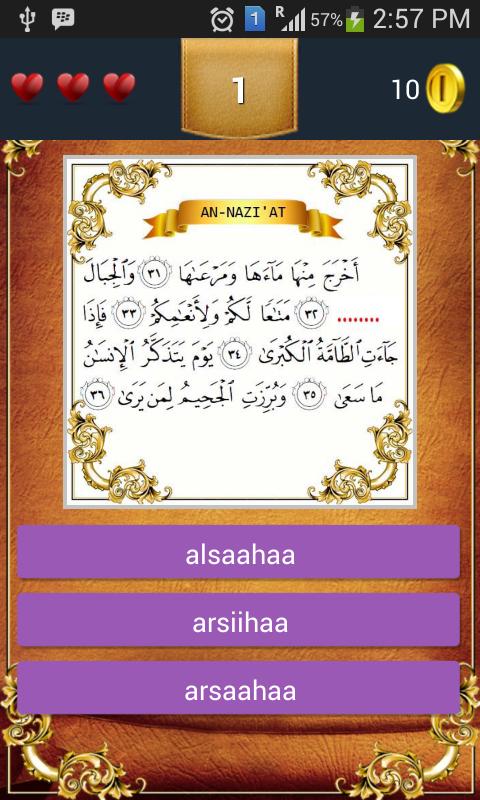 R 57% 2:57 PM
1
1
10
AN-NAZI'AT
أَخْرَجَ مِنْهَا مَآءَهَا وَمَرْعَىٰهَا ٣١ وَٱلْجِبَالَ
........ ٣٢ مَتَٰعًا لَّكُمْ وَلِأَنْعَٰمِكُمْ ٣٣ فَإِذَا
جَآءَتِ ٱلطَّآمَّةُ ٱلْكُبْرَىٰ ٣٤ يَوْمَ يَتَذَكَّرُ ٱلْإِنسَٰنُ
مَا سَعَىٰ ٣٥ وَبُرِّزَتِ ٱلْجَحِيمُ لِمَن يَرَىٰ ٣٦
alsaahaa
arsiihaa
arsaahaa